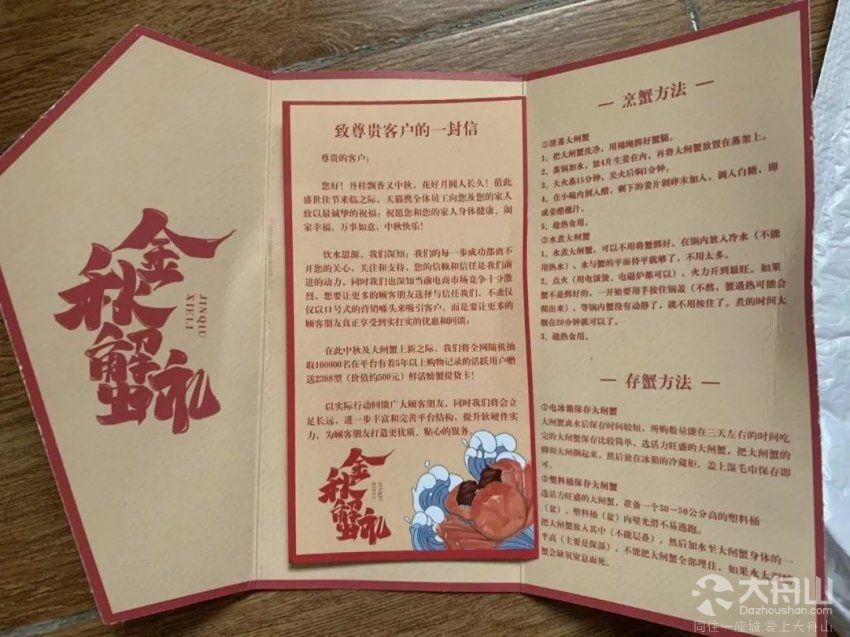 金秋蟹礼
JINQIU
XIELI
致尊贵客户的一封信
尊贵的客户：
您好！丹桂飘香又中秋，花好月圆人长久！值此
盛世佳节来临之际，天猫携全体员工向您及您的家人
致以最诚挚的祝福；祝愿您和您的家人身体健康、阖
家幸福、万事如意，中秋快乐！
饮水思源，我们深知：我们的每一步成功都离不
开您的关心，关注和支持，您的信赖和信任是我们前
进的动力。同时我们也深知当前电商市场竞争十分激
烈，想要让更多的顾客朋友选择与信任我们，不能仅
仅以口号式的营销噱头来吸引客户，而是要让更多的
顾客朋友真正享受到实打实的优惠和回馈；
在此中秋及大闸蟹上新之际，我们将全网随机抽
取100000名在平台有着5年以上购物记录的活跃用户赠
送2388型（价值约500元）鲜活螃蟹提货卡！
以实际行动回馈广大顾客朋友，同时我们将会立
足长远，进一步丰富和完善平台结构，提升软硬件实
力，为顾客朋友打造更优质、贴心的服务。
金秋蟹礼
JINQIU
XIELI
— 烹蟹方法 —
①清蒸大闸蟹
1、把大闸蟹洗净，用棉绳绑好蟹腿。
2、蒸锅加水，放4片生姜在内，再将大闸蟹放置在蒸架上。
3、大火蒸15分钟，关火后焖1分钟。
4、在小碗内倒入醋，剩下的姜片剁碎末加入，调入白糖，即
成姜醋蘸汁。
5、趁热食用。
②水煮大闸蟹
1、水煮大闸蟹，可以不用将蟹绑好。在锅内放入冷水（不能
用热水），水与蟹的平面持平就够了，不用太多。
2、点火（用电饭煲、电磁炉都可以），火力开到最旺。如果
蟹不是绑好的，一开始要用手按住锅盖（不然，蟹遇热可能会
爬出来），等锅内蟹没有动静了，就不用按住了。煮的时间大
概在20分钟就可以了。
3、趁热食用。
— 存蟹方法 —
①电冰箱保存大闸蟹
大闸蟹离水后保存时间较短，所购数量能在三天左右的时间吃
完的大闸蟹保存比较简单，选活力旺盛的大闸蟹，把大闸蟹的
脚和大闸捆起来，然后放在冰箱的冷藏柜，盖上湿毛巾保存即
可。
②塑料桶保存大闸蟹
选活力旺盛的大闸蟹，准备一个30～50公分高的塑料桶
（盆），塑料桶（盆）内壁光滑不易逃跑。
把大闸蟹放入其中（不能层叠），然后加水至大闸蟹身体的一
半高（主要是保湿），不能把大闸蟹全部埋住，如果水太
蟹会缺氧窒息而死。
大舟山
Dazhoushan.com
同住一座城.爱上大舟山